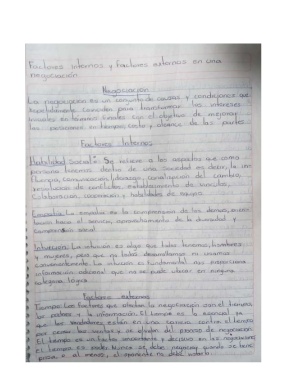 Factores internos y factores externos en una
negociación
Negociación
La negociación es un conjunto de causas y condiciones que
coinciden para transformar los intereses
iniciales en término finales con el objetivo de mejorar
las posiciones en tiempo, costo y alcance de las partes
Factores Internos
Habilidad Social: Se refiere a los aspectos que como
persona tenemos dentro de una sociedad es decir, la in
fluencia, comunicación, liderazgo, canalización del cambio,
resolución de conflictos, establecimiento de vínculos,
Colaboración, cooperación y habilidades de equipo.
Empatía: La empatía es la comprensión de los demás, orien
tación hacia el servicio, aprovechamiento de la diversidad y
comprensión social
Intuición: La intuición es algo que todos tenemos, hombres
y mujeres, pero que no todos desarrollamos ni usamos
convenientemente. La intuición es fundamental nos proporciona
información adicional que no se puede ubicar en ninguna
categoría lógica
Factores externos
Tiempo: Los factores que afectan la negociación son el tiempo,
los poderes y la información. El tiempo es la esencial ya
que los vendedores están en una contra el tiempo
El tiempo es un factor importante y decisivo en las negociaciones
el tiempo es poder nunca se debe negociar cuando se tiene
prisa, o al menos, el oponente no debe notarlo.